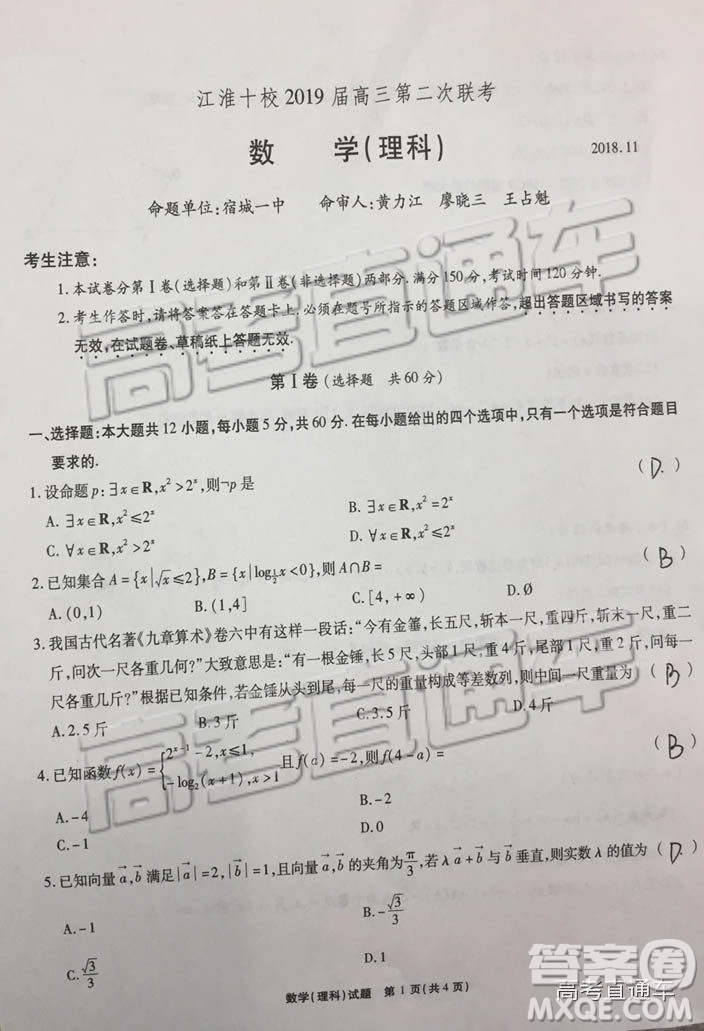 江淮十校2019届高三第二次联考
数 学(理科)
2018.11
命题单位:宿城一中 命审人:黄力江 廖晓三 王占魁
考生注意:
1.本试卷分第Ⅰ卷(选择题)和第Ⅱ卷(非选择题)两部分.满分150分,考试时间120分钟.
2.考生作答时,请将答案答在答题卡上.必须在题号所指示的答题区域作答,超出答题区域书写的答案
无效,在试题卷、草稿纸上答题无效.
第Ⅰ卷(选择题 共60分)
一、选择题:本大题共12小题,每小题5分,共60分.在每小题给出的四个选项中,只有一个选项是符合题目
要求的.
1.设命题p:∃x∈R,x²>2ˣ,则¬p是 (D.)
A.∃x∈R,x²≤2ˣ B.∃x∈R,x²=2ˣ
C.∀x∈R,x²>2ˣ D.∀x∈R,x²≤2ˣ
2.已知集合A={x|√x≤2},B={x|log½x<0},则A∩B= (B)
A.(0,1) B.(1,4] C.[4,+∞) D.∅
3.我国古代名著《九章算术》卷六中有这样一段话:“今有金箠,长五尺,斩本一尺,重四斤,斩末一尺,重二
斤,问次一尺各重几何?”大致意思是:“有一根金锤,长5尺,头部1尺,重4斤,尾部1尺,重2斤,问每一
尺各重几斤?”根据已知条件,若金锤从头到尾,每一尺的重量构成等差数列,则中间一尺重量为 (B)
A.2.5斤 B.3斤 C.3.5斤 D.4斤
4.已知函数f(x)={2ˣ⁻¹-2,x≤1, -log₂(x+1),x>1 且f(a)=-2,则f(4-a)= (B)
A.-4 B.-2
C.-1 D.0
5.已知向量a⃗,b⃗满足|a⃗|=2,|b⃗|=1,且向量a⃗,b⃗的夹角为π/3,若λa⃗+b⃗与b⃗垂直,则实数λ的值为 (D.)
A.-1 B.-√3/3
C.√3/3 D.1
数学(理科)试题 第1页(共4页)
高考直通车
高考直通车
高考直通车
答案圈
MXQE.COM